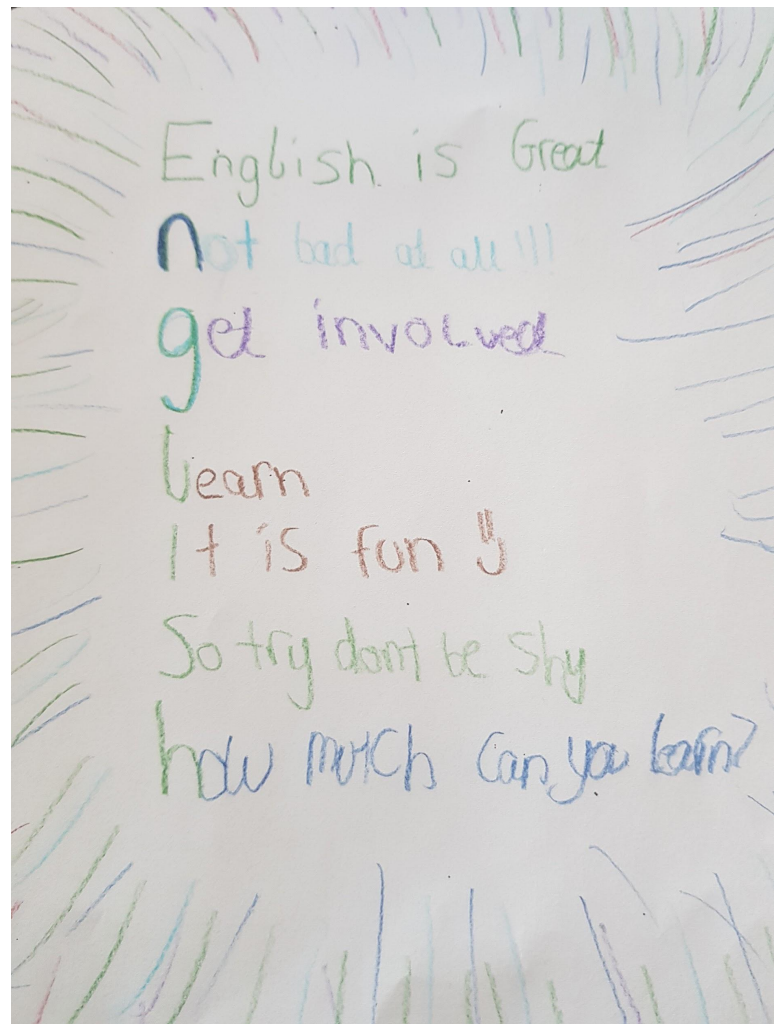 English is Great
not bad at all!!!
get involved
Learn
It is fun :)
So try dont be shy
how mutch can you learn?